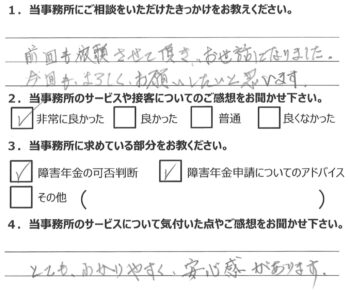 1. 当事務所にご相談をいただけたきっかけをお教えください。
前回も依頼させて頂き、お世話になりました。
今回も、よろしくお願いしたいと思います。
2. 当事務所のサービスや接客についてのご感想をお聞かせ下さい。
☑非常に良かった □良かった □普通 □良くなかった
3. 当事務所に求めている部分をお教えください。
☑障害年金の可否判断 ☑障害年金申請についてのアドバイス
□その他 ( )
4. 当事務所のサービスについて気付いた点やご感想をお聞かせ下さい。
とても、わかりやすく、安心感があります。